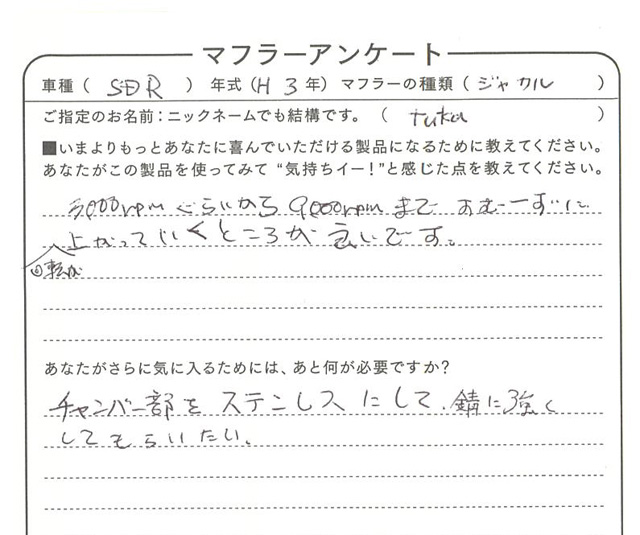 マフラーアンケート
車種（ SDR ） 年式（H 3 年） マフラーの種類（ ジャッカル ）
ご指定のお名前：ニックネームでも結構です。（ tuka ）
■いまよりもっとあなたに喜んでいただける製品になるために教えてください。
あなたがこの製品を使ってみて“気持ちイー！”と感じた点を教えてください。
5000rpmぐらいから9000rpmまで すむーずに
回転が上がっていくところが良いです。
あなたがさらに気に入るためには、あと何が必要ですか？
チャンバー部をステンレスにして、錆に強く
してもらいたい。